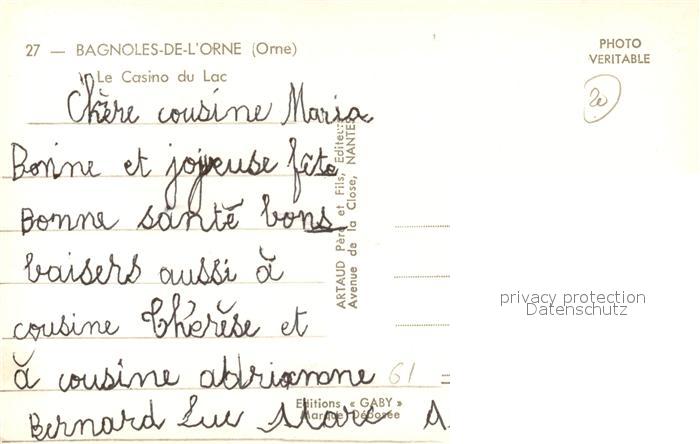 27 — BAGNOLES-DE-L'ORNE (Orne)
Le Casino du Lac
PHOTO
VERITABLE
20
Chère cousine Maria
Bonne et joyeuse fête
Bonne santé bons
baisers aussi à
cousine Thérèse et
à cousine addrianne
Bernard Luc Marc A
61
ARTAUD Père et Fils, Editeurs
Avenue de la Close, NANTES
Editions « GABY »
Marque Déposée
privacy protection
Datenschutz